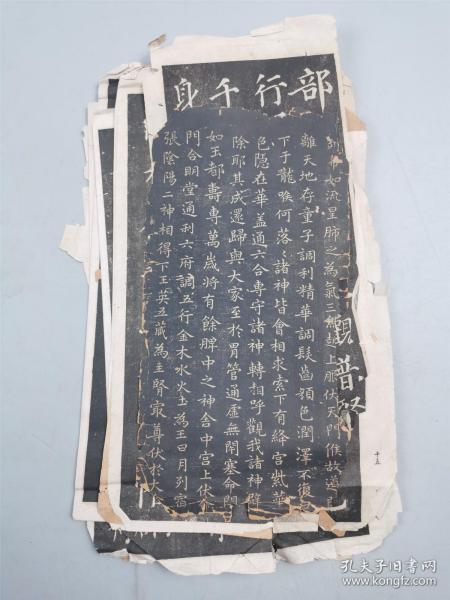 部行千身
如流星肺之為氣三焦起上服伏天門候故道
離天地存童子調利精華調髮齒顏色潤澤不復
下于龍喉何落〻諸神皆會相求索下有絳宮紫華
色隱在華蓋通六合專守諸神轉相呼觀我諸神辟
除耶其成還歸與大家至於胃管通虛無閉塞命門
如玉都壽專萬歲將有餘脾中之神舍中宮上伏命
門合明堂通利六府調五行金木水火土為王日月列宿
張陰陽二神相得下玉英五藏為主腎最尊伏於大
觀普賢
十五
孔夫子旧书网
www.kongfz.com